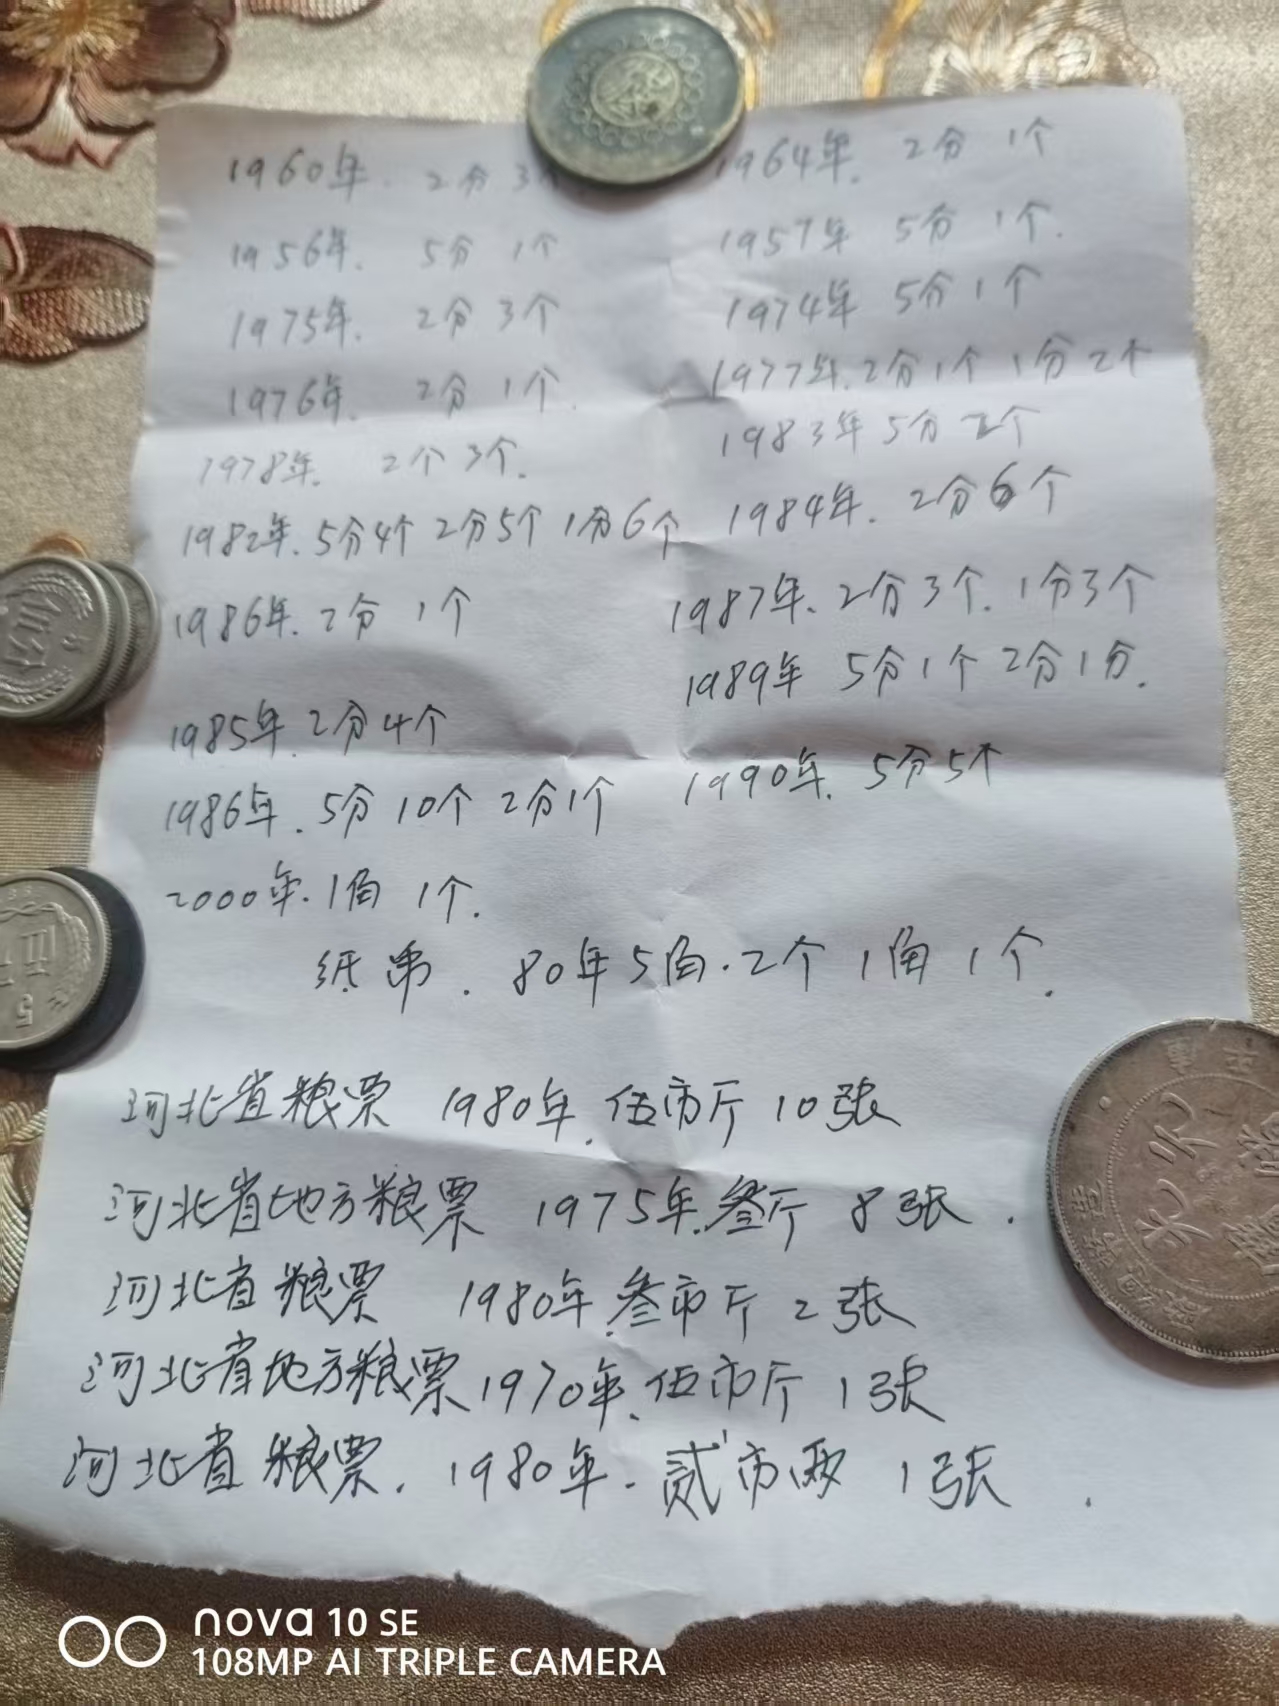 1960年. 2分 3个
1964年. 2分 1个
1956年. 5分 1个
1957年 5分 1个.
1975年. 2分 3个
1974年 5分 1个
1976年. 2分 1个.
1977年.2分1个 1分2个
1978年. 2个 3个.
1983年 5分 2个
1982年.5分4个 2分5个 1分6个
1984年. 2分6个
1986年.2分 1个
1987年.2分3个.1分3个
1989年 5分1个 2分1分.
1985年.2分4个
1986年.5分10个 2分1个
1990年. 5分5个
2000年.1角 1个.
纸币. 80年5角.2个 1角 1个.
河北省粮票 1980年.伍市斤 10张
河北省地方粮票 1975年.叁斤 8张.
河北省粮票 1980年.叁市斤 2张
河北省地方粮票1970年.伍市斤 1张
河北省粮票. 1980年.贰市两 1张.
伍分
5
nova 10 SE
108MP AI TRIPLE CAMERA